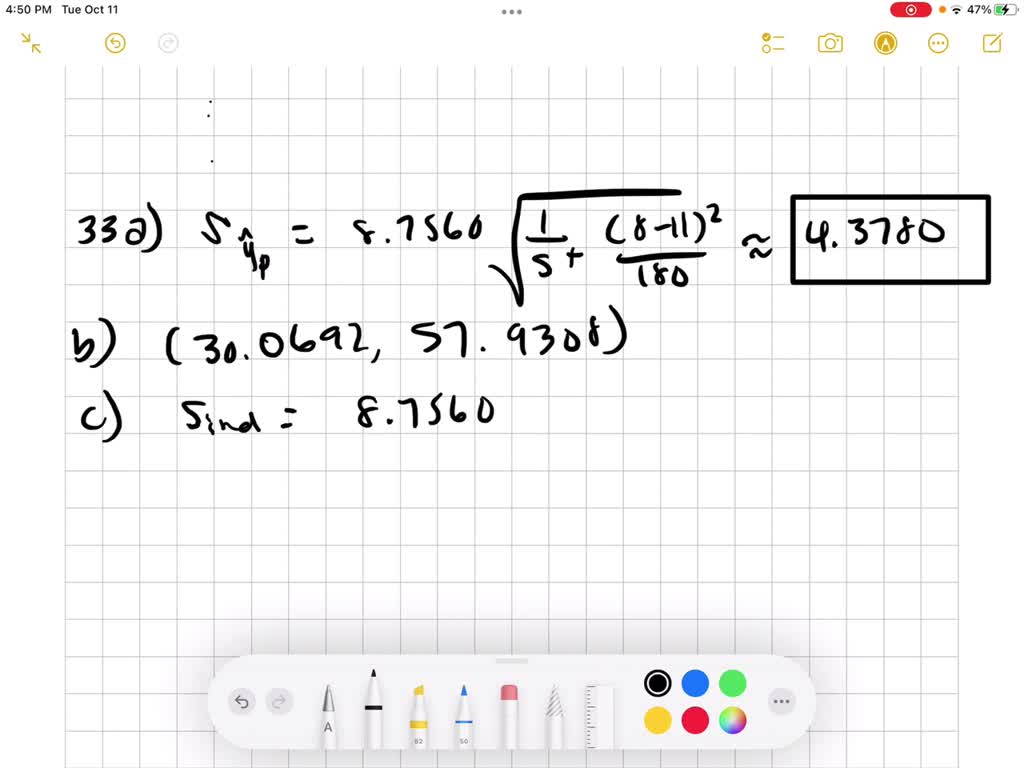 4:50 PM Tue Oct 11 47%
33a) S ŷp = 8.7560 √(1/5 + (8-11)²/180) ≈ 4.3780
b) (30.0692, 57.9308)
c) Sind = 8.7560
A 82 50